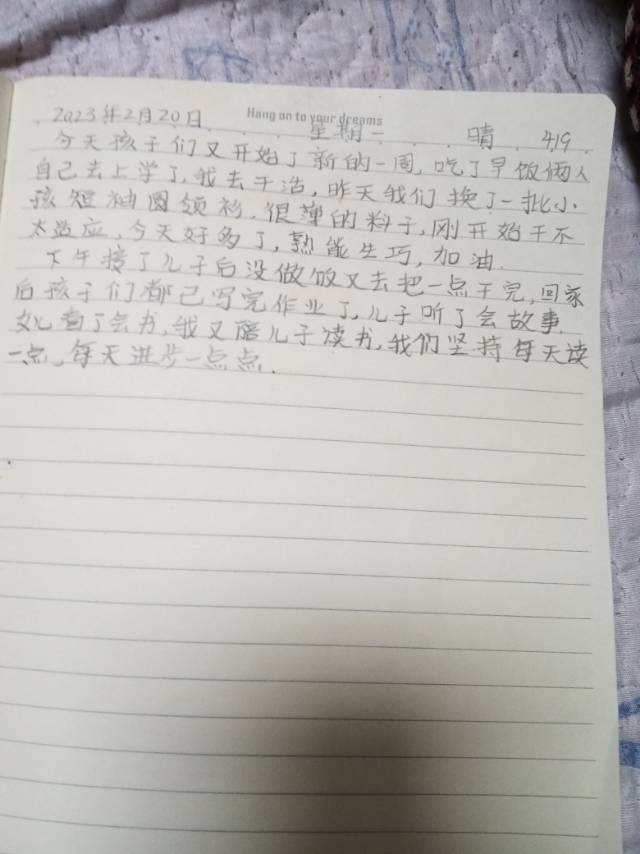 Hang on to your dreams
2023年2月20日 星期一 晴 419
今天孩子们又开始了新的一周,吃了早饭俩人
自己去上学了,我去干活,昨天我们换了一批小
孩短袖圆领衫.很薄的料子,刚开始干不
太适应,今天好多了,熟能生巧,加油.
下午接了儿子后没做饭又去把一点干完,回家
后孩子们都已写完作业了,儿子听了会故事.
女儿看了会书,我又陪儿子读书,我们坚持每天读
一点,每天进步一点点.